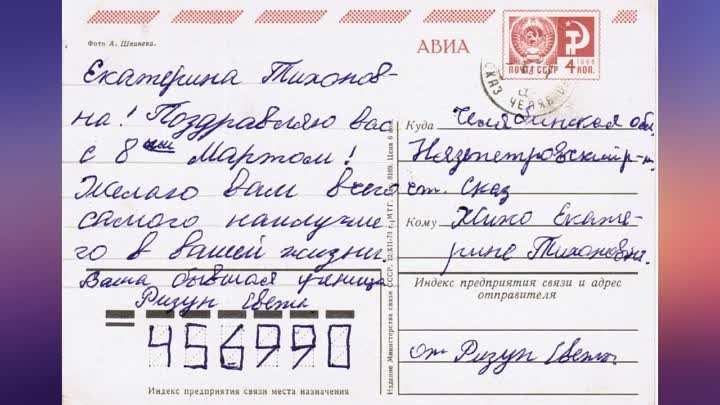 Фото А. Шпинева.
АВИА
1966
ПОЧТА СССР 4 КОП.
СКАЗ ЧЕЛЯБ
Екатерина Тихонов-
на! Поздравляю вас
с 8ым Мартом!
Желаю вам всего
самого наилучше
го в вашей жизни.
Ваша бывшая ученица
Ризун Светл.
456990
Индекс предприятия связи места назначения
Издание Министерства связи СССР.
Цена 6 коп.
Куда Челябинская обл.
Нязепетровский р-н.
ст. Сказ
Кому Хижо Екате-
рине Тихоновне.
Индекс предприятия связи и адрес
отправителя
от Ризун Светл.